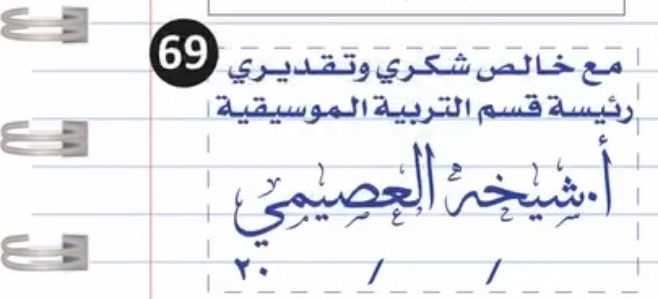 69
مع خالص شكري وتقديري
رئيسة قسم التربية الموسيقية
أ. شيخه العصيمي
/ / ٢٠